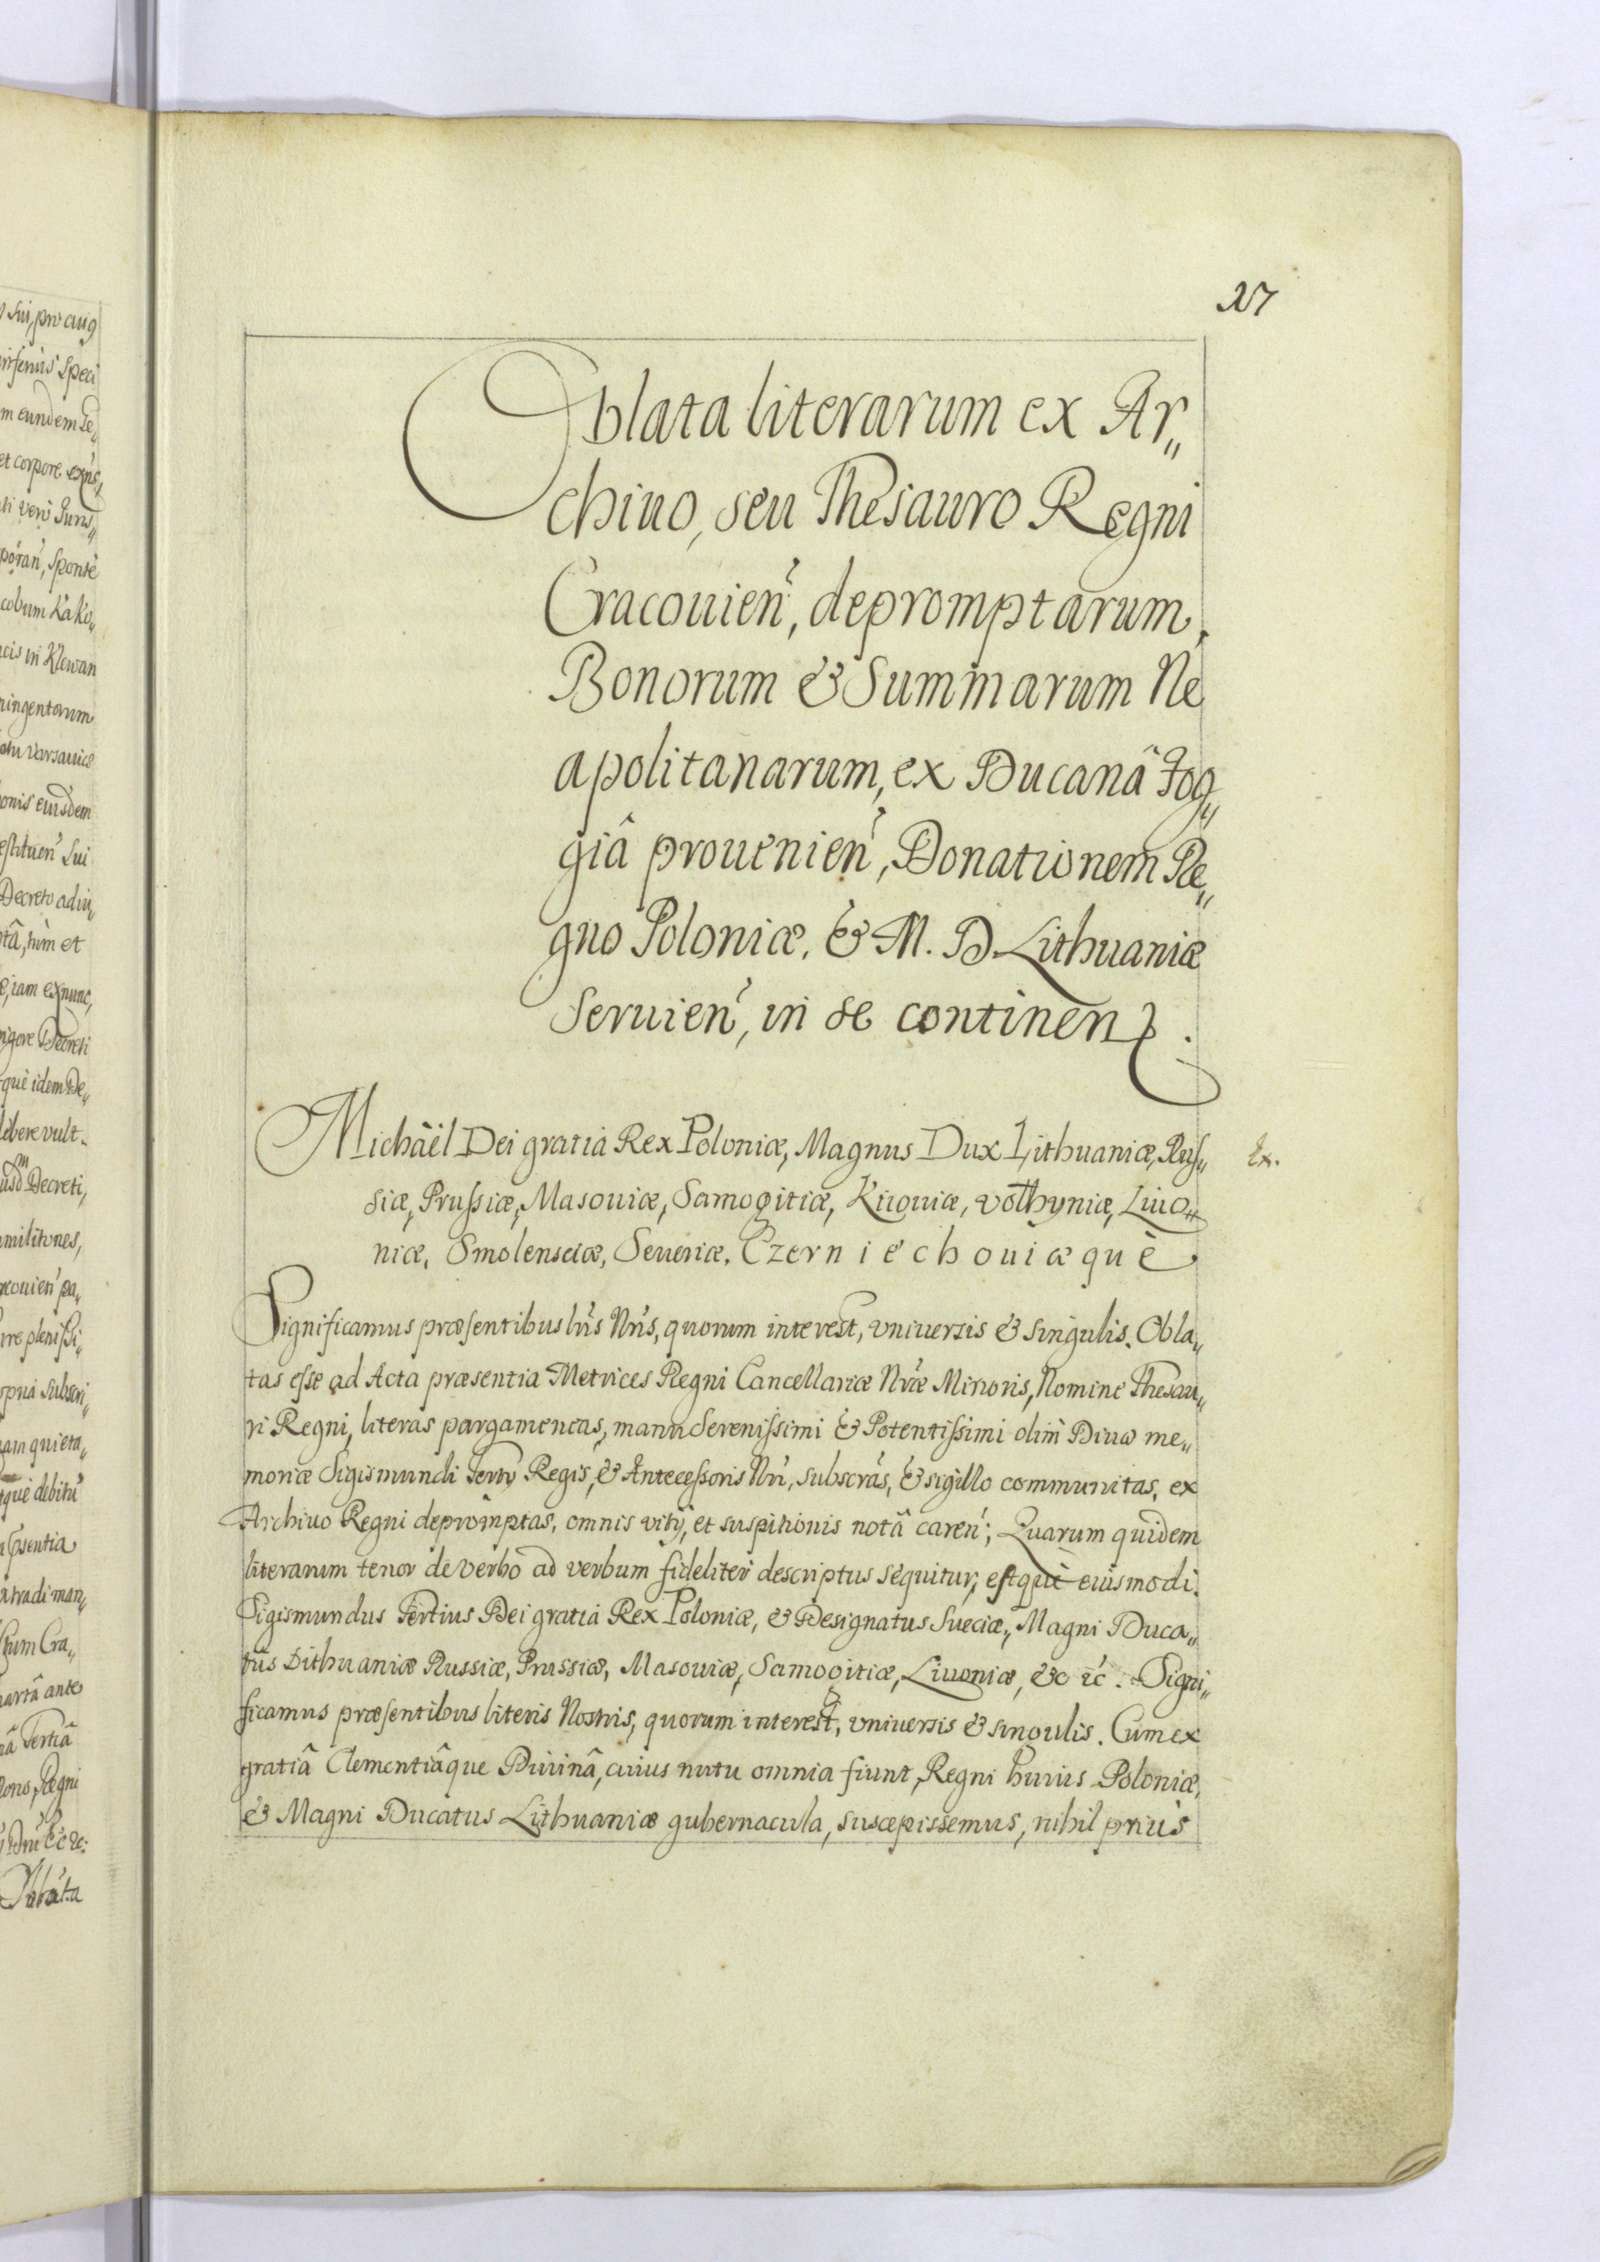 sui, pro aug
speci
m eundem Te„
et corpore
poran̄, sponte
cobum Kako„
in Klewan
ningentorum
Varsauiæ
onis eiusdem
sui
Decreto adiu„
tâ, tùm et
iam exnunc,
Decreti
què idem De„
libere vult.
Decreti,
rre plenissi„
subscri„
quieta„
atradi man„
Cra„
ante
Tertiâ
Regni
Oblata
27
Oblata literarum ex Ar„
chiuo, seu Thesauro Regni
Cracouien̄, depromptarum,
Bonorum & Summarum Ne
apolitanarum, ex Ducanâ Fog„
giâ prouenien̄, Donationem Re„
gno Poloniæ, & M. D. Lithuaniæ
seruien̄, in se continen̄.
Michäel Dei gratia Rex Poloniæ, Magnus Dux Lithuaniæ, Rus„
siæ, Prussiæ, Masouiæ, Samogitiæ, Kiiouiæ, Volhyniæ, Liuo„
niæ, Smolensciæ, Seueriæ, Czerniechouiæquè
Ex.
Significamus præsentibus lr̄is Nr̄is, quorum interest, vniuersis & singulis. Obla„
tas esse ad Acta præsentia Metrices Regni Cancellariæ Nr̄æ Minoris, Nomine Thesau„
ri Regni, literas pargameneas, manu Serenissimi & Potentissimi olim Diuæ me„
moriæ Sigismundi Tertij Regis, & Antecessoris Nr̄i, subscr̄as, & sigillo communitas, ex
Archiuo Regni depromptas, omnis vitij, et suspitionis notâ caren̄; Quarum quidem
literarum tenor de verbo ad verbum fideliter descriptus sequitur, estquè eiusmodi.
Sigismundus Tertius Dei gratia Rex Poloniæ, & Designatus Sueciæ, Magni Duca„
tus Lithuaniæ Russiæ, Prussiæ, Masouiæ, Samogitiæ, Liuoniæ, &c &c. Signi„
ficamus præsentibus literis Nostris, quorum interest, vniuersis & singulis. Cum ex
gratiâ Clementiâque Diuinâ, cuius nutu omnia fiunt, Regni huius Poloniæ,
& Magni Ducatus Lithuaniæ gubernacula, suscepissemus, nihil priùs